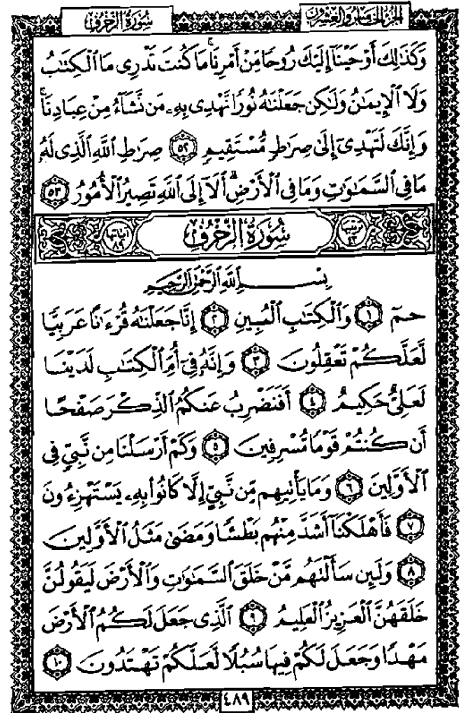 سُورَةُ الزُّخْرُفِ الجزء الخامس والعشرون
وَكَذَٰلِكَ أَوْحَيْنَآ إِلَيْكَ رُوحًا مِّنْ أَمْرِنَا ۚ مَا كُنتَ تَدْرِى مَا ٱلْكِتَٰبُ
وَلَا ٱلْإِيمَٰنُ وَلَٰكِن جَعَلْنَٰهُ نُورًا نَّهْدِى بِهِۦ مَن نَّشَآءُ مِنْ عِبَادِنَا ۚ
وَإِنَّكَ لَتَهْدِىٓ إِلَىٰ صِرَٰطٍ مُّسْتَقِيمٍ ٥٢ صِرَٰطِ ٱللَّهِ ٱلَّذِى لَهُۥ
مَا فِى ٱلسَّمَٰوَٰتِ وَمَا فِى ٱلْأَرْضِ ۗ أَلَآ إِلَى ٱللَّهِ تَصِيرُ ٱلْأُمُورُ ٥٣
سُورَةُ الزُّخْرُفِ
بِسْمِ ٱللَّهِ ٱلرَّحْمَٰنِ ٱلرَّحِيمِ
حمٓ ١ وَٱلْكِتَٰبِ ٱلْمُبِينِ ٢ إِنَّا جَعَلْنَٰهُ قُرْءَٰنًا عَرَبِيًّا
لَّعَلَّكُمْ تَعْقِلُونَ ٣ وَإِنَّهُۥ فِىٓ أُمِّ ٱلْكِتَٰبِ لَدَيْنَا
لَعَلِىٌّ حَكِيمٌ ٤ أَفَنَضْرِبُ عَنكُمُ ٱلذِّكْرَ صَفْحًا
أَن كُنتُمْ قَوْمًا مُّسْرِفِينَ ٥ وَكَمْ أَرْسَلْنَا مِن نَّبِىٍّ فِى
ٱلْأَوَّلِينَ ٦ وَمَا يَأْتِيهِم مِّن نَّبِىٍّ إِلَّا كَانُوا۟ بِهِۦ يَسْتَهْزِءُونَ
٧ فَأَهْلَكْنَآ أَشَدَّ مِنْهُم بَطْشًا وَمَضَىٰ مَثَلُ ٱلْأَوَّلِينَ
٨ وَلَئِن سَأَلْتَهُم مَّنْ خَلَقَ ٱلسَّمَٰوَٰتِ وَٱلْأَرْضَ لَيَقُولُنَّ
خَلَقَهُنَّ ٱلْعَزِيزُ ٱلْعَلِيمُ ٩ ٱلَّذِى جَعَلَ لَكُمُ ٱلْأَرْضَ
مَهْدًا وَجَعَلَ لَكُمْ فِيهَا سُبُلًا لَّعَلَّكُمْ تَهْتَدُونَ ١٠
٤٨٩